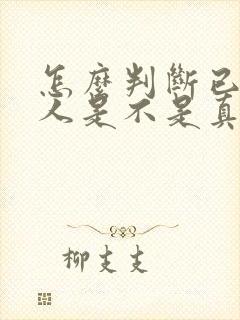 怎麼判斷已
人是不是真
柳支支